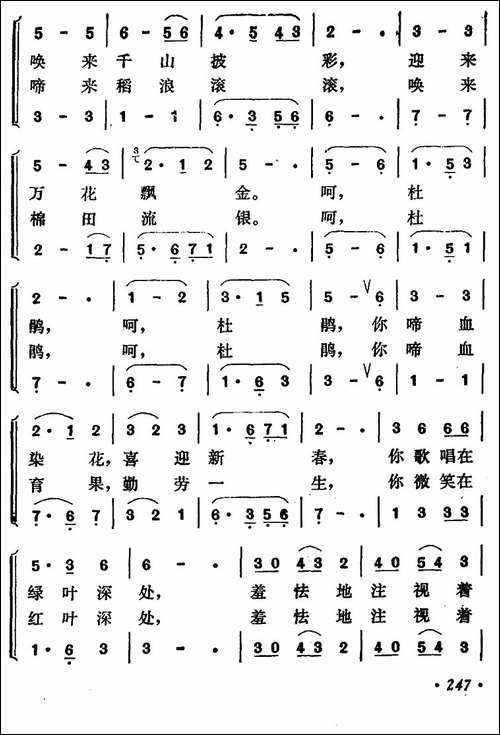 5 - 5 | 6 - 5 6 | 4 · 5 4 3 | 2 - · | 3 - 3 |
唤 来 千 山 披 彩, 迎 来
啼 来 稻 浪 滚 滚, 唤 来
3 - 3 | 1 - 1 | 6 · 3 5 6 | 6 - · | 7 - 7 |
5 - 4 3 | 2 · 1 2 | 5 - · | 5 - 6 | 1 · 5 3 |
万 花 飘 金。 呵, 杜
棉 田 流 银。 呵, 杜
2 - 1 7 | 5 · 6 7 1 | 2 - · | 5 - 6 | 1 · 5 1 |
2 - · | 1 - 2 | 3 · 1 5 | 5 - 6 | 3 - 3 |
鹃, 呵, 杜 鹃, 你 啼 血
鹃, 呵, 杜 鹃, 你 啼 血
7 - · | 6 - 7 | 1 · 6 3 | 3 - 6 | 1 - 1 |
2 · 1 2 | 3 2 3 | 1 · 6 7 1 | 2 - · | 3 6 6 6 |
染 花, 喜 迎 新 春, 你 歌 唱 在
育 果, 勤 劳 一 生, 你 微 笑 在
7 · 6 7 | 3 2 1 | 6 · 3 5 6 | 7 - · | 1 3 3 3 |
5 · 3 6 | 6 - · | 3 0 4 3 2 | 4 0 5 4 3 |
绿 叶 深 处, 羞 怯 地 注 视 着
红 叶 深 处, 羞 怯 地 注 视 着
1 · 6 3 | 3 - · | 3 0 4 3 2 | 4 0 5 4 3 |
· 247 ·